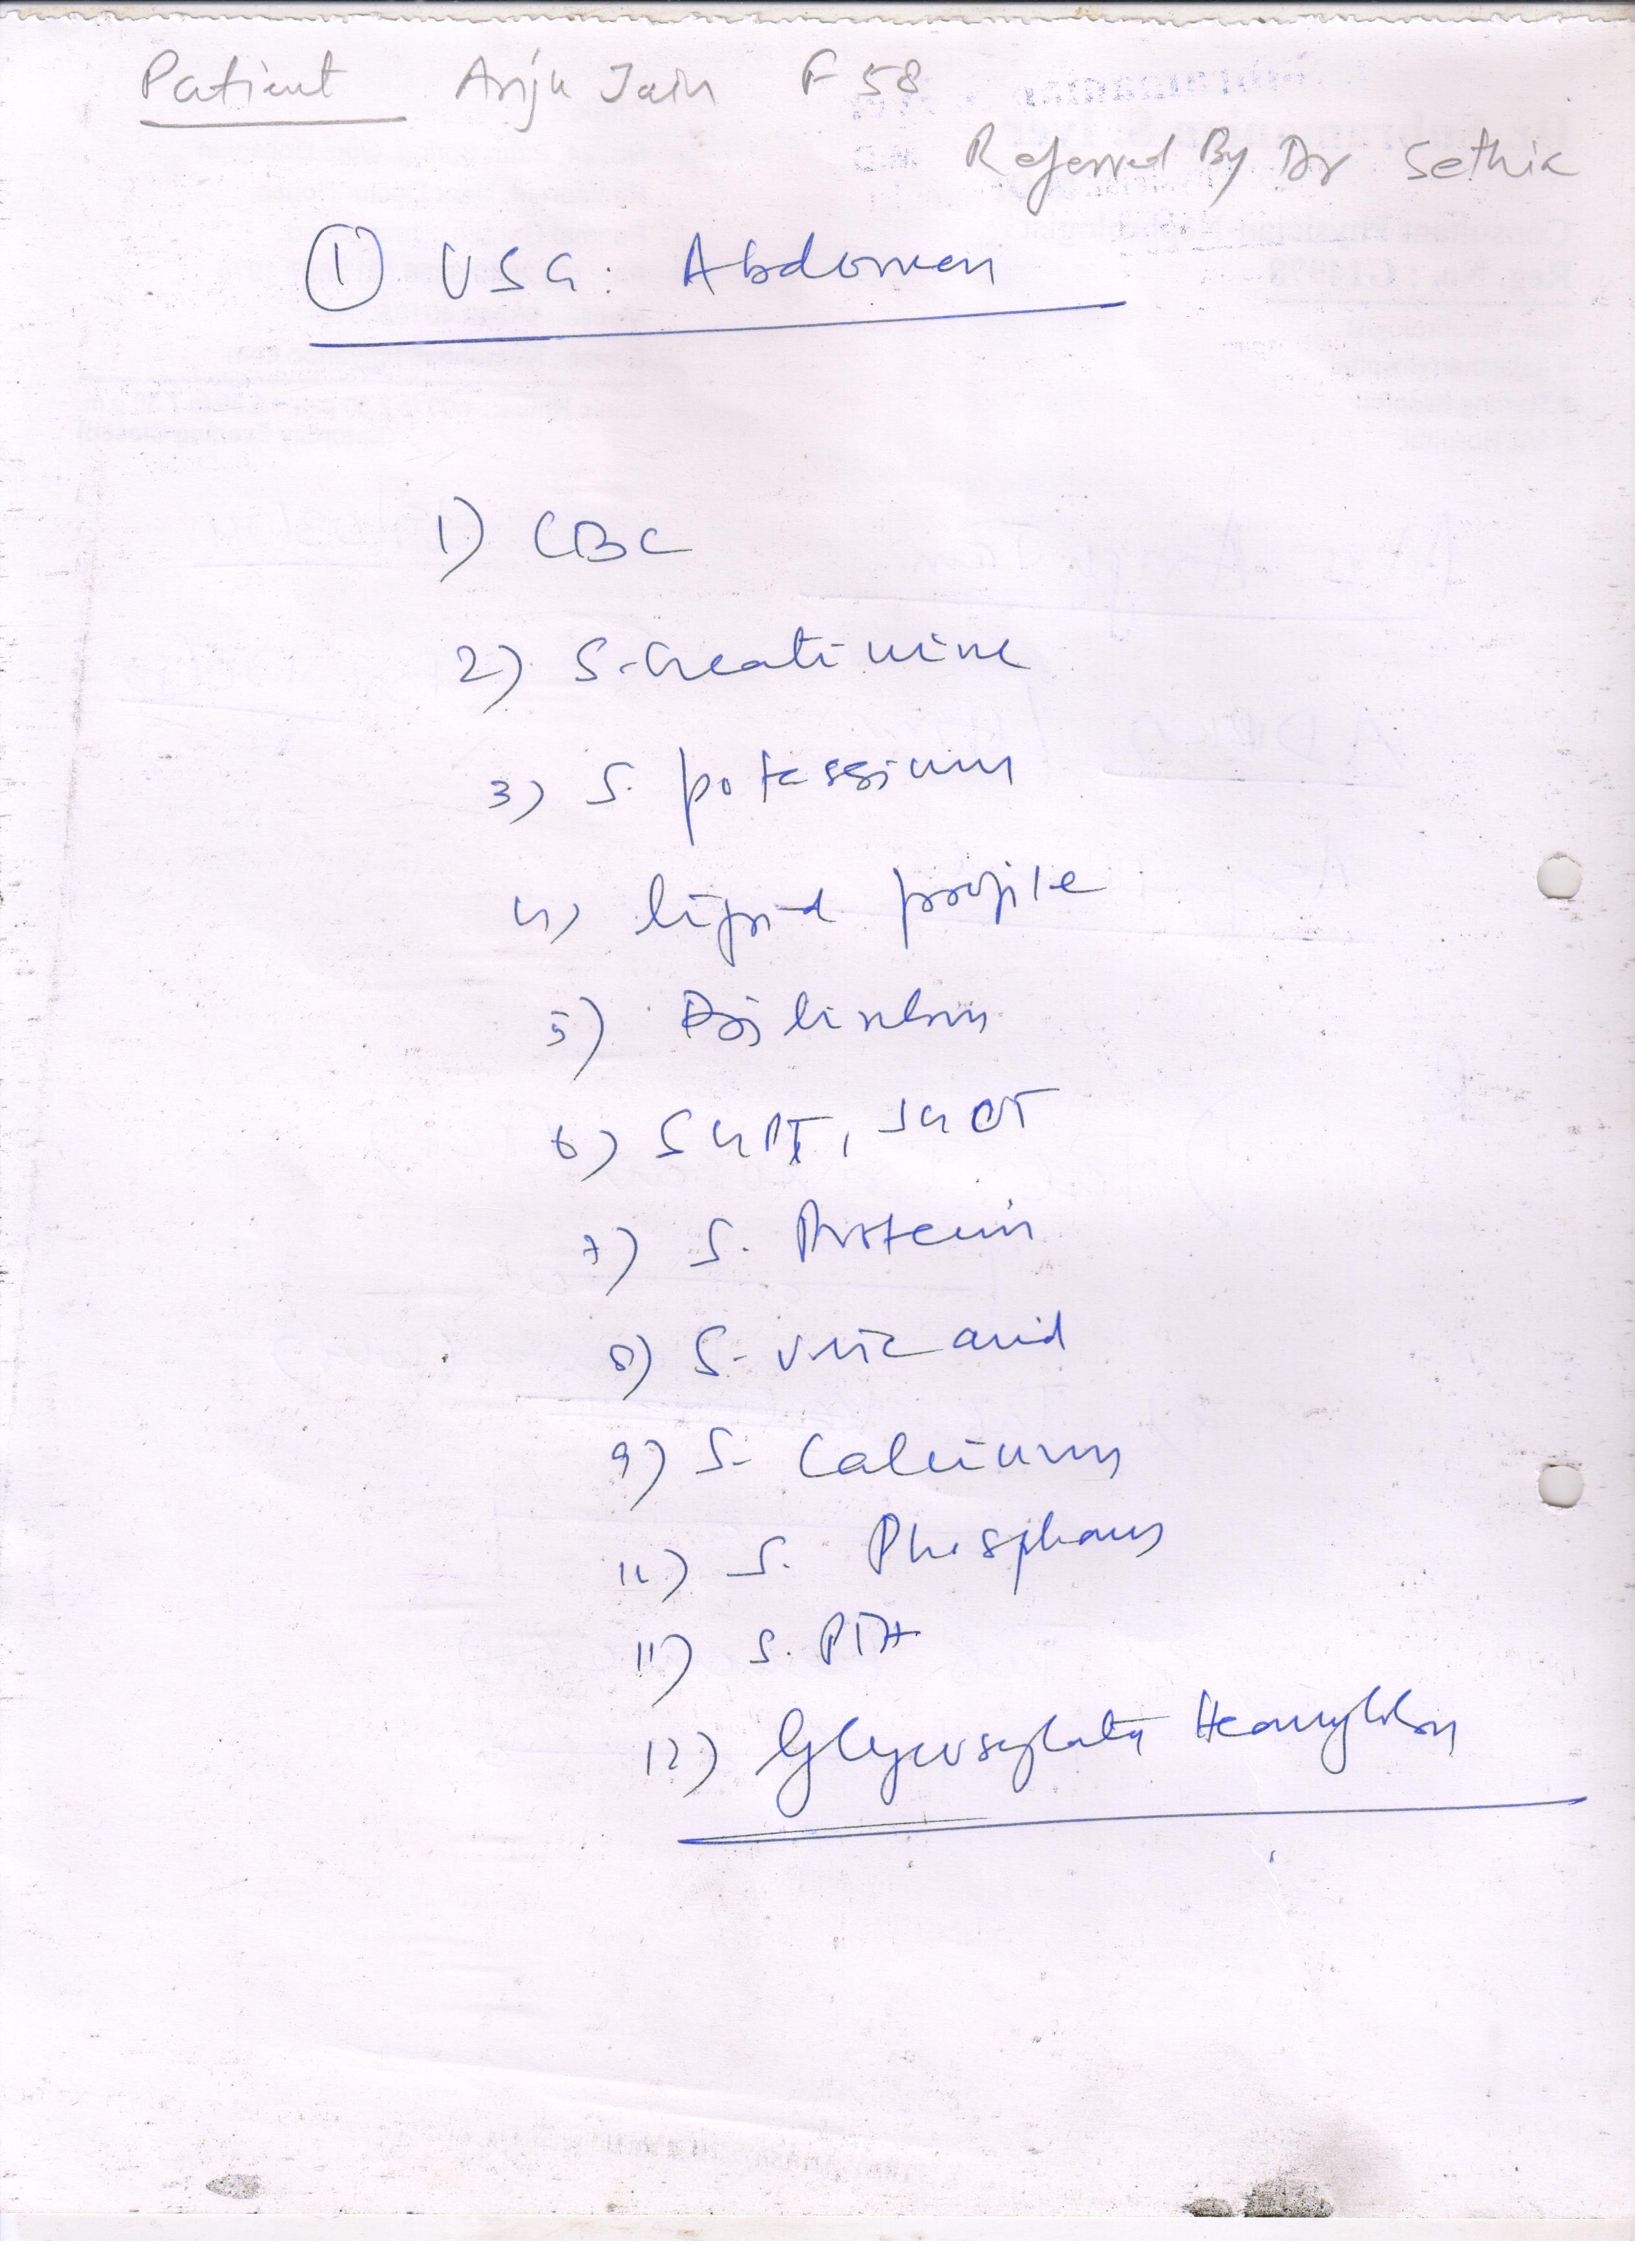 Patient Anju Jain F 58
Referred By Dr Sethia
① USG: Abdomen
1) CBC
2) S. Creatinine
3) S. potassium
4) lipid profile
5) Bilirubin
6) SGPT, SGOT
7) S. Protein
8) S. uric acid
9) S. Calcium
10) S. Phosphorus
11) S. PTH
12) Glycosylated Heamoglobin